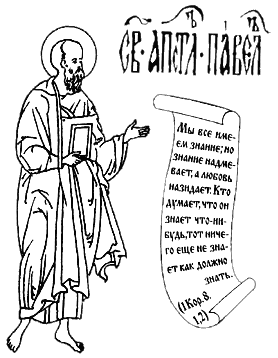 СВ·АПСТЛ·ПАВЕЛЪ
Мы все име-
ем знание; но
знание надме-
вает, а любовь
назидает. Кто
думает, что он
знает что-ни-
будь, тот ниче-
го еще не зна-
ет как должно
знать.
(1 Кор. 8.
1,2)